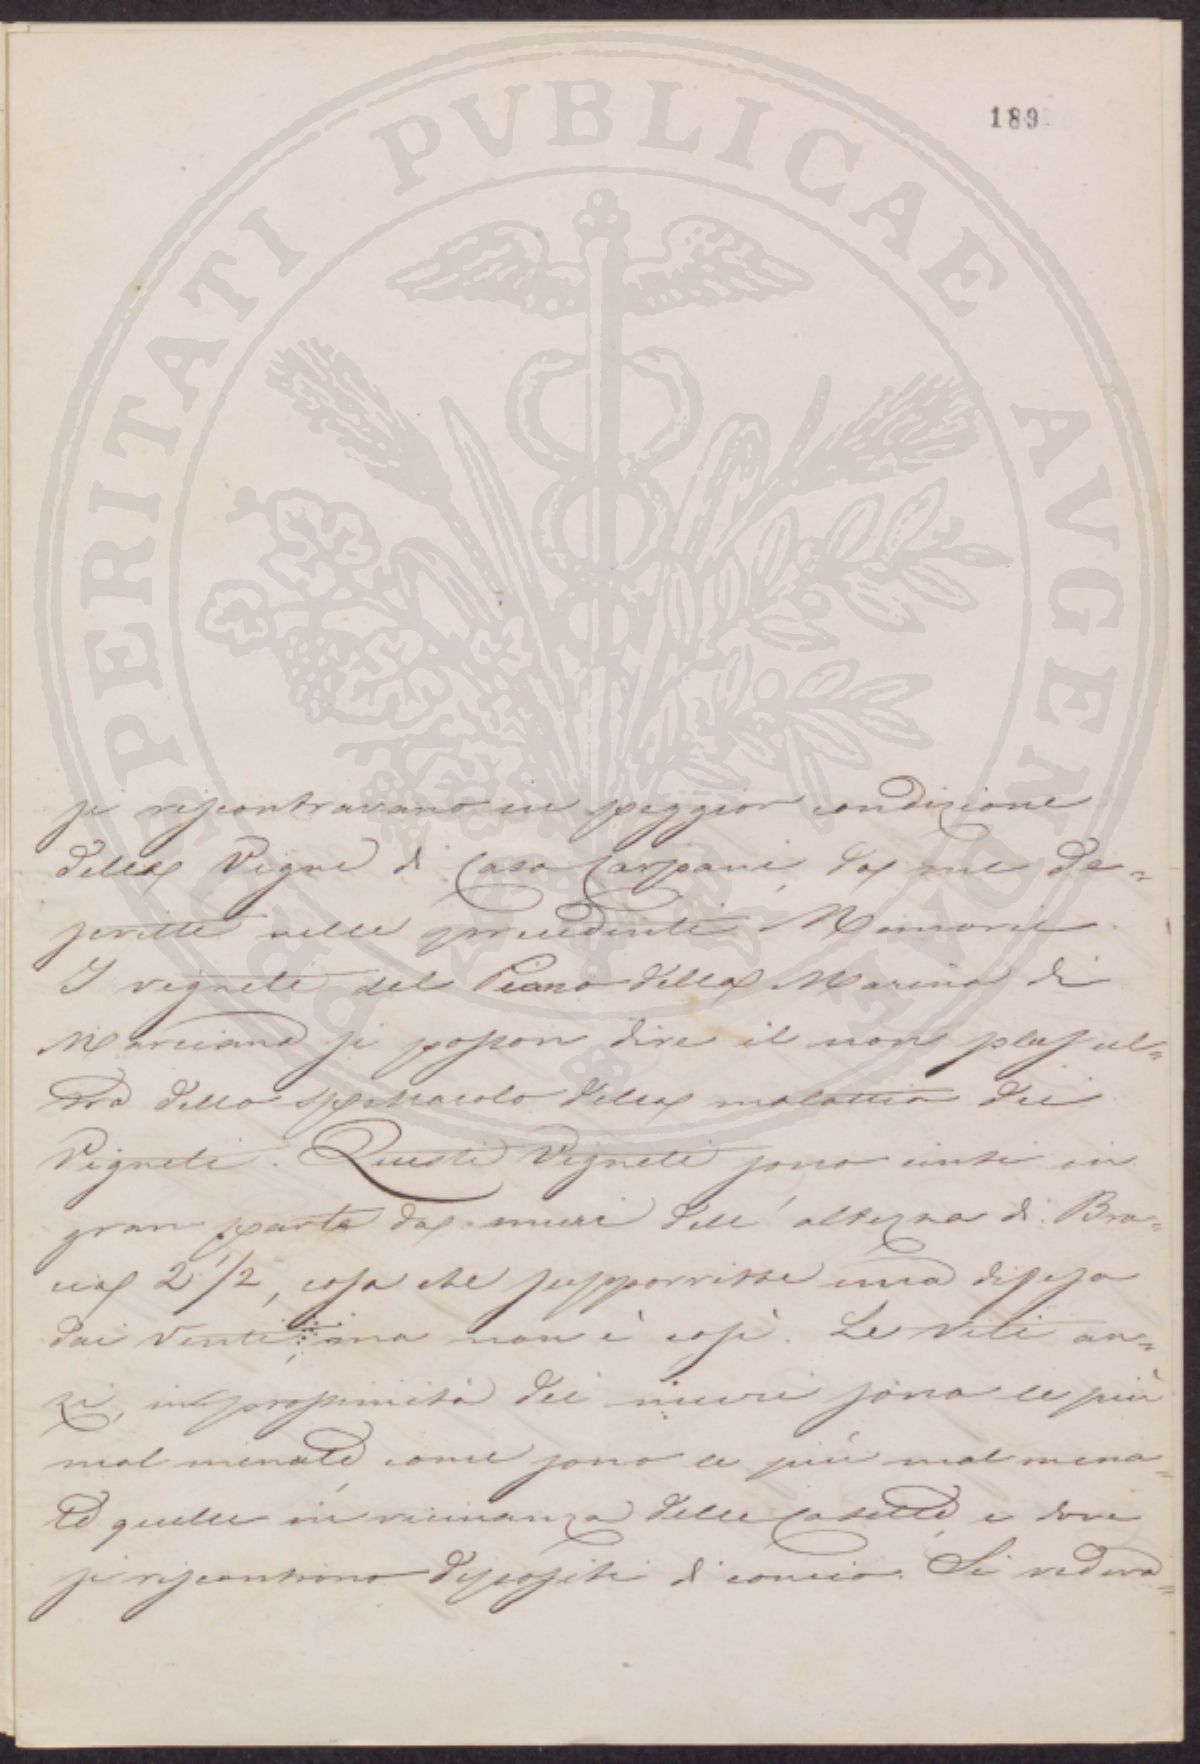 189
PROSPERITATI PVBLICAE AVGENDAE
si riscontravano in peggior condizione
della Vigne di Casa Carpani, da me de=
scritte nelle precedenti Memorie.
I vigneti del Piano della Marina di
Marciana si posson dire il non plus ul=
tra dello spettacolo della malattia dei
Vigneti. Questi Vigneti sono cinti in
gran parte da muri dell' altezza di Bra=
cia 2 1/2, cosa che supporrebbe una difesa
dai Venti; ma non è così. Le viti an=
zi, in prossimità dei muri sono le più
mal menate, come sono le più mal mena=
te quelle in vicinanza delle Casette, e dove
si riscontrono depositi di concio. Si vedeva=